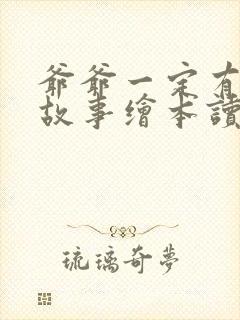 爺爺一定有
故事繪本讀
琉璃奇夢